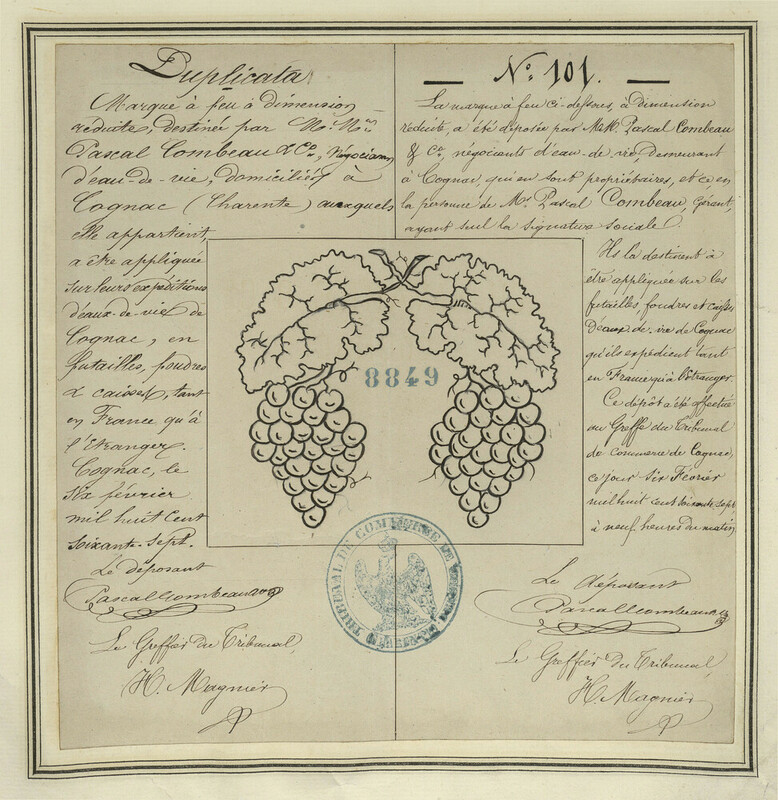 Duplicata
Marque à feu à dimension
réduite, destinée par
Pascal Combeau & Cie, Négociants
d'eau-de-vie, domiciliés à
Cognac (Charente) auxquels
elle appartient,
a être appliquée
sur leurs expéditions
d'eaux-de-vie de
Cognac, en
futailles, foudres
& caisses, tant
en France qu'à
l'Etranger.
Cognac, le
six février
mil huit cent
soixante-sept.
Le déposant
Pascal Combeau & Co
Le Greffier du Tribunal,
H. Magnier
No. 101.
La marque à feu ci-dessous, à dimension
réduite, a été déposée par MM. Pascal Combeau
& Co, négociants d'eau-de-vie, demeurant
à Cognac, qui en sont propriétaires, et ce, en
la personne de Mr Pascal Combeau, Gérant,
ayant seul la signature sociale.
Ils la destinent à
être appliquée sur les
futailles, foudres et caisses
d'eaux-de-vie de Cognac
qu'ils expédient tant
en France qu'à l'étranger.
Ce dépôt a été effectué
au Greffe du Tribunal
de commerce de Cognac,
ce jour six Février
mil huit cent soixante-sept,
à neuf heures du matin
Le déposant
Pascal Combeau & Co
Le Greffier du Tribunal,
H. Magnier
8849
TRIBUNAL DE COMMERCE DE